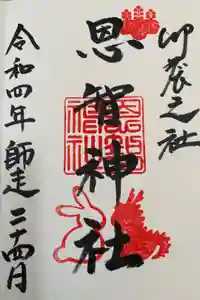 卯辰之社
恩智神社
恩智神社
令和四年 師走 二十四日